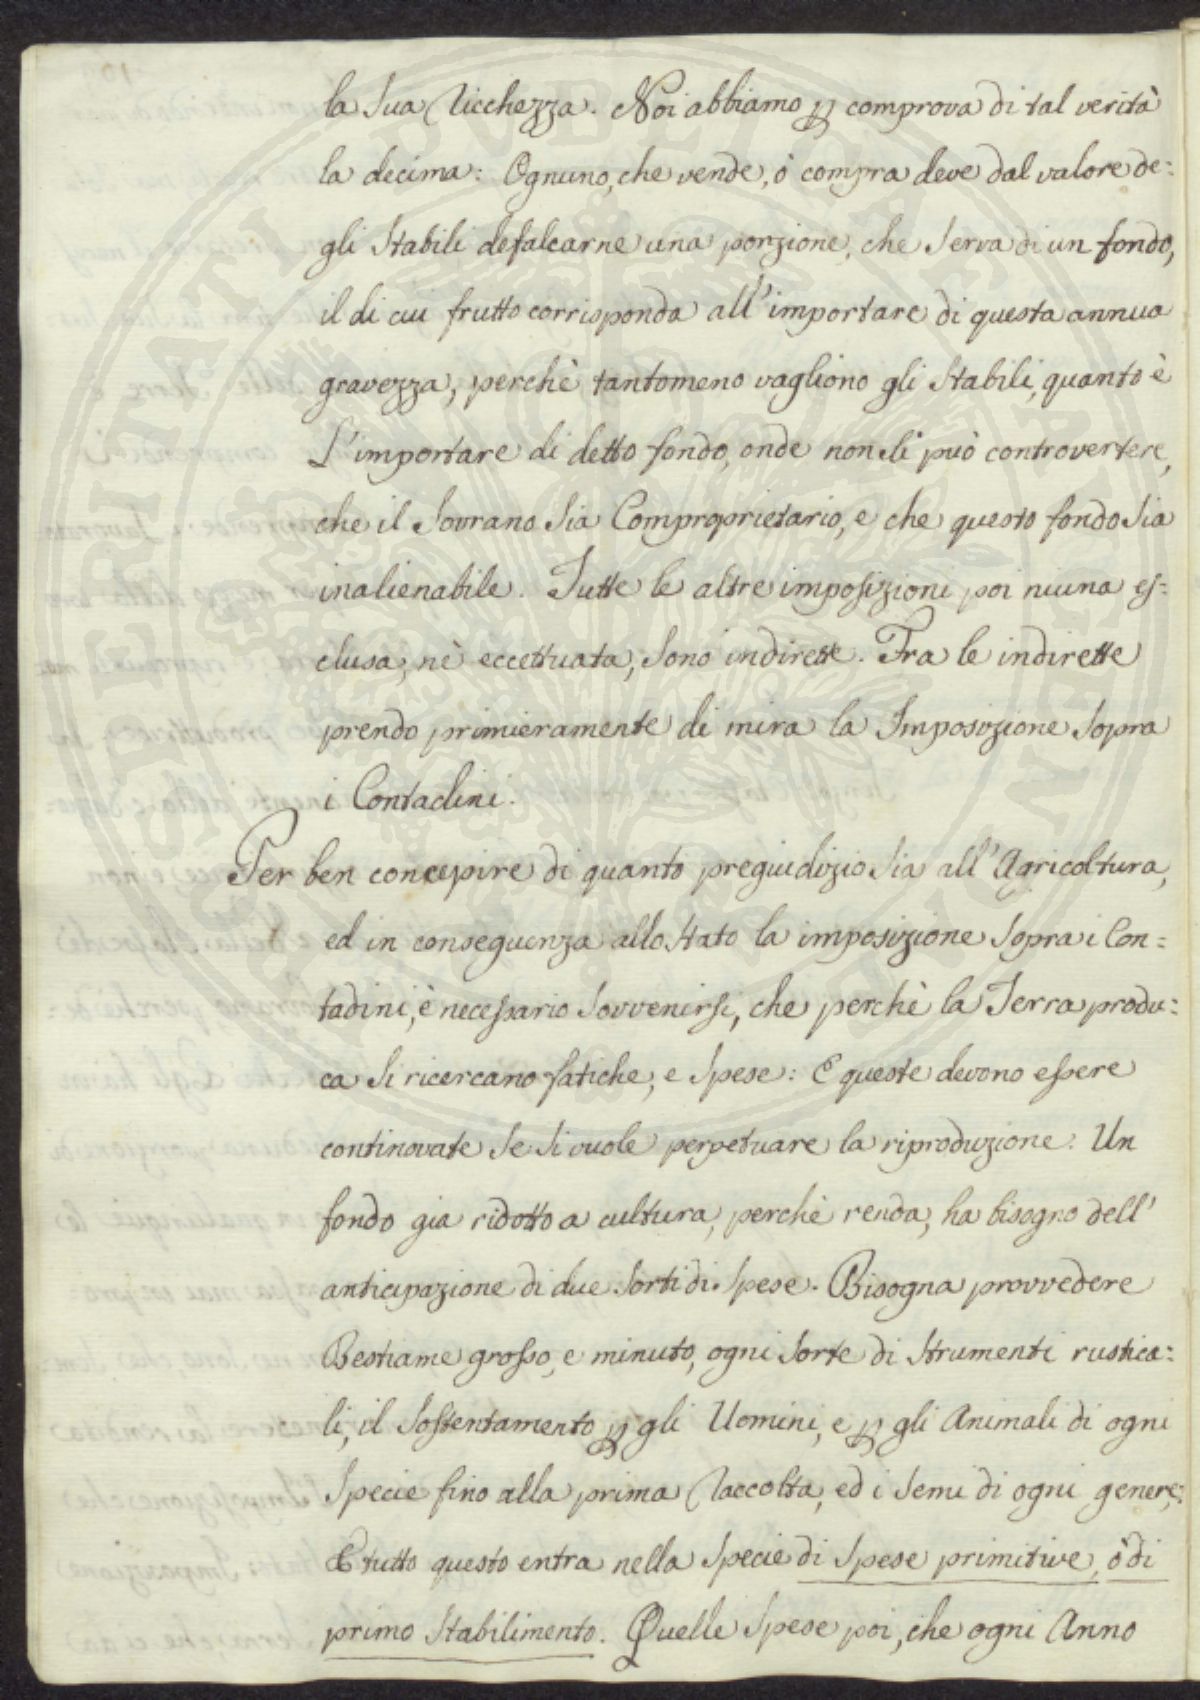 la sua Ricchezza. Noi abbiamo ꝑ comprova di tal verità
la decima: Ognuno, che vende, ò compra deve dal valore de=
gli Stabili defalcarne una porzione, che serva di un fondo,
il di cui frutto corrisponda all'importare di questa annua
gravezza, perchè tantomeno vagliono gli Stabili, quanto è
l'importare di detto fondo, onde non si può controvertere,
che il Sovrano sia Comproprietario, e che questo fondo sia
inalienabile. Tutte le altre imposizioni poi niuna es=
clusa, nè eccettuata, sono indirette. Fra le indirette
prendo primieramente di mira la Imposizione sopra
i Contadini.
Per ben concepire di quanto pregiudizio sia all'Agricoltura,
ed in conseguenza allo Stato la imposizione sopra i Con=
tadini, è necessario sovvenirsi, che perchè la Terra produ=
ca si ricercano fatiche, e spese: E queste devono essere
continovate se si vuole perpetuare la riproduzione. Un
fondo gia ridotto a cultura, perchè renda, ha bisogno dell'
anticipazione di due sorti di spese. Bisogna provvedere
Bestiame grosso, e minuto, ogni sorte di Strumenti rustica=
li, il sostentamento ꝑ gli Uomini, e ꝑ gli Animali di ogni
specie fino alla prima Raccolta, ed i semi di ogni genere:
E tutto questo entra nella specie di spese primitive, ò di
primo Stabilimento. Quelle spese poi, che ogni Anno
SPQF